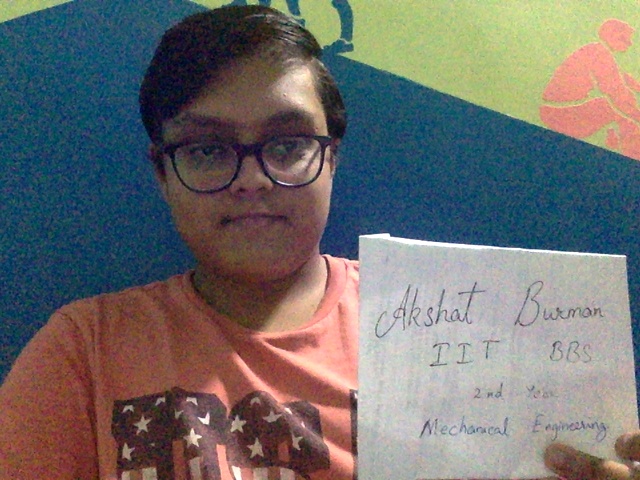 Akshat Burman
IIT BBS
2nd Year
Mechanical Engineering